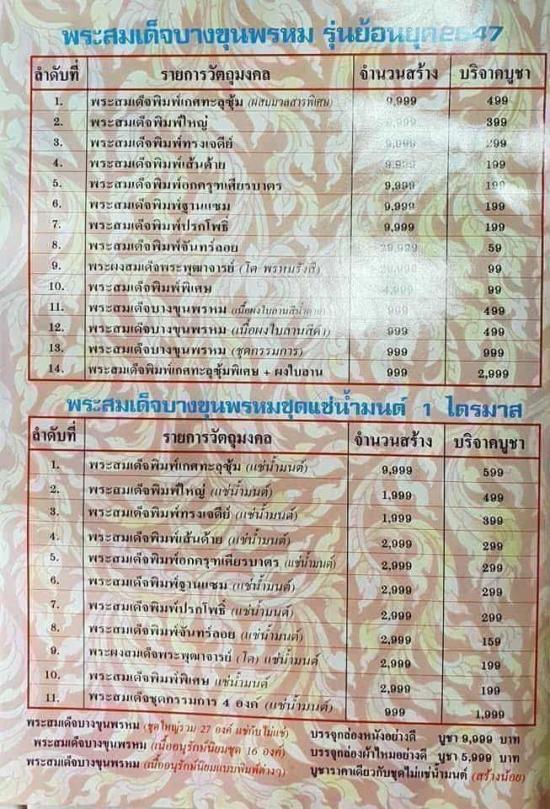 พระสมเด็จบางขุนพรหม รุ่นย้อนยุค2547
ลำดับที่ รายการวัตถุมงคล จำนวนสร้าง บริจาคบูชา
1. พระสมเด็จพิมพ์เกศทะลุซุ้ม (ผสมมวลสารพิเศษ) 9,999 499
2. พระสมเด็จพิมพ์ใหญ่ 9,999 399
3. พระสมเด็จพิมพ์ทรงเจดีย์ 9,999 299
4. พระสมเด็จพิมพ์เส้นด้าย 9,999 199
5. พระสมเด็จพิมพ์อกครุฑเศียรบาตร 9,999 199
6. พระสมเด็จพิมพ์ฐานแซม 9,999 199
7. พระสมเด็จพิมพ์ปรกโพธิ์ 9,999 199
8. พระสมเด็จพิมพ์จันทร์ลอย 29,999 59
9. พระผงสมเด็จพระพุฒาจารย์ (โต พรหมรังสี) 99
10. พระสมเด็จพิมพ์พิเศษ 4,999 99
11. พระสมเด็จบางขุนพรหม 999 499
12. พระสมเด็จบางขุนพรหม (เนื้อผงใบลานสีดำ) 999 499
13. พระสมเด็จบางขุนพรหม (ชุดกรรมการ) 999 999
14. พระสมเด็จพิมพ์เกศทะลุซุ้มพิเศษ + ผงใบลาน 999 2,999
พระสมเด็จบางขุนพรหมชุดแช่น้ำมนต์ 1 ไตรมาส
ลำดับที่ รายการวัตถุมงคล จำนวนสร้าง บริจาคบูชา
1. พระสมเด็จพิมพ์เกศทะลุซุ้ม (แช่น้ำมนต์) 9,999 599
2. พระสมเด็จพิมพ์ใหญ่ (แช่น้ำมนต์) 1,999 499
3. พระสมเด็จพิมพ์ทรงเจดีย์ (แช่น้ำมนต์) 1,999 399
4. พระสมเด็จพิมพ์เส้นด้าย (แช่น้ำมนต์) 2,999 299
5. พระสมเด็จพิมพ์อกครุฑเศียรบาตร (แช่น้ำมนต์) 2,999 299
6. พระสมเด็จพิมพ์ฐานแซม (แช่น้ำมนต์) 2,999 299
7. พระสมเด็จพิมพ์ปรกโพธิ์ (แช่น้ำมนต์) 2,999 299
8. พระสมเด็จพิมพ์จันทร์ลอย (แช่น้ำมนต์) 2,999 159
9. พระผงสมเด็จพระพุฒาจารย์ (โต) แช่น้ำมนต์ 2,999 199
10. พระสมเด็จพิมพ์พิเศษ แช่น้ำมนต์ 2,999 199
11. พระสมเด็จชุดกรรมการ 4 องค์ (แช่น้ำมนต์) 999 1,999
พระสมเด็จบางขุนพรหม (ชุดใหญ่รวม 27 องค์ แช่กับไม่แช่) บรรจุกล่องหนังอย่างดี บูชา 9,999 บาท
พระสมเด็จบางขุนพรหม (เนื้ออนุรักษ์นิยมชุด 16 องค์) บรรจุกล่องผ้าไหมอย่างดี บูชา 5,999 บาท
พระสมเด็จบางขุนพรหม (เนื้ออนุรักษ์นิยมแบบพิมพ์ต่างๆ) บูชาราคาเดียวกับชุดไม่แช่น้ำมนต์ (สร้างน้อย)